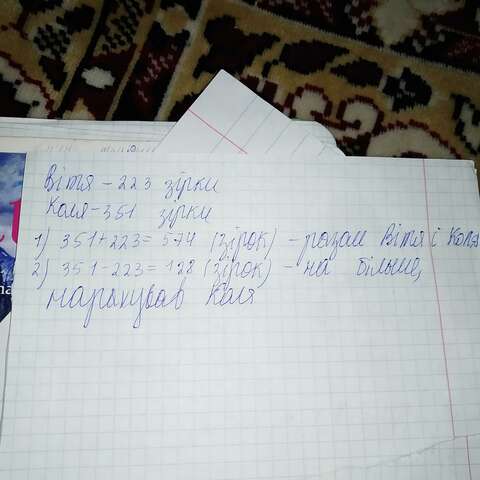 Вітя - 223 зірки
Коля - 351 зірки
1) 351+223=574 (зірок) - разом Вітя і Коля
2) 351-223=128 (зірок) - на більше,
нарахував Коля